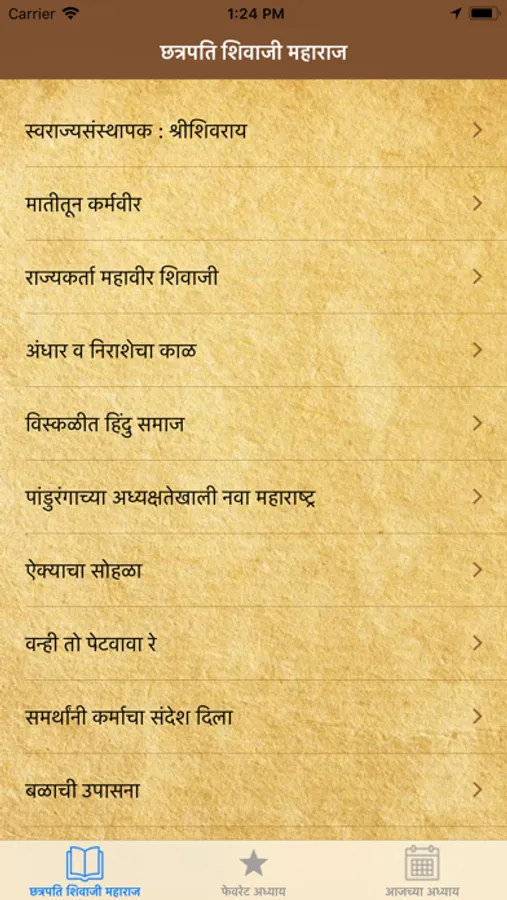 Carrier 1:24 PM
छत्रपति शिवाजी महाराज
स्वराज्यसंस्थापक : श्रीशिवराय
मातीतून कर्मवीर
राज्यकर्ता महावीर शिवाजी
अंधार व निराशेचा काळ
विस्कळीत हिंदु समाज
पांडुरंगाच्या अध्यक्षतेखाली नवा महाराष्ट्र
ऐक्याचा सोहळा
वन्ही तो पेटवावा रे
समर्थांनी कर्माचा संदेश दिला
बळाची उपासना
छत्रपति शिवाजी महाराज फेवरेट अध्याय आजच्या अध्याय